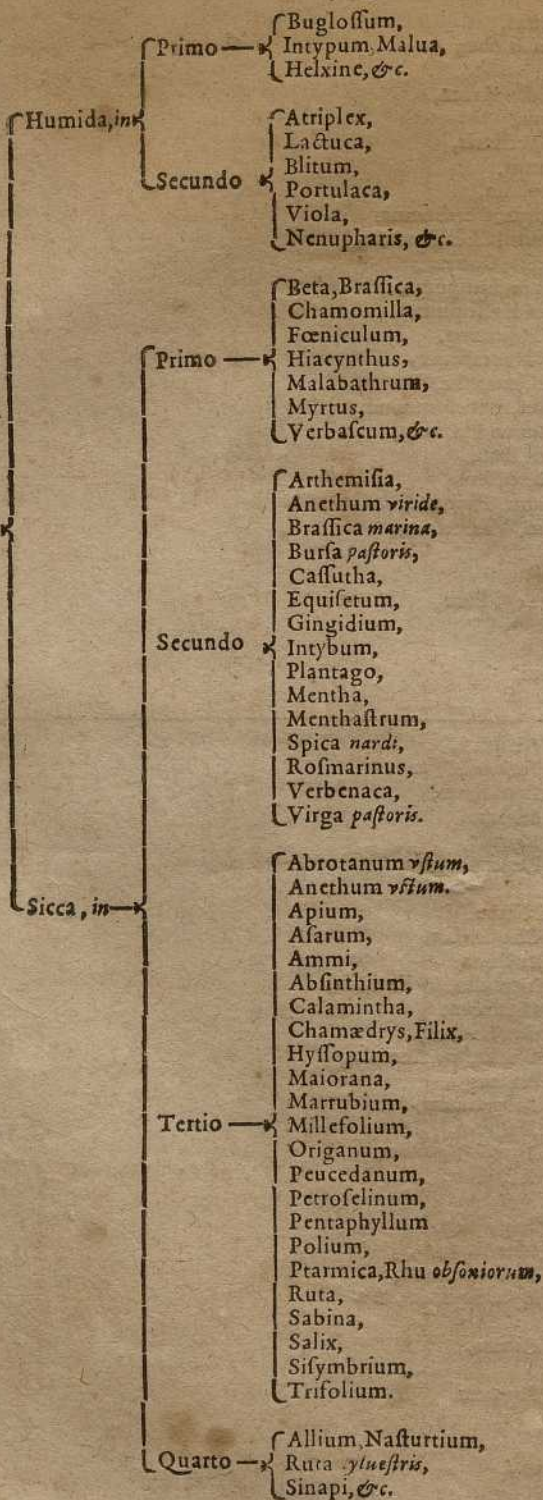 Humida, in
Primo
Bugloſſum,
Intypum, Malua,
Helxine, &c.
Secundo
Atriplex,
Lactuca,
Blitum,
Portulaca,
Viola,
Nenupharis, &c.
Sicca, in
Primo
Beta, Braſſica,
Chamomilla,
Fœniculum,
Hiacynthus,
Malabathrum,
Myrtus,
Verbaſcum, &c.
Secundo
Arthemiſia,
Anethum viride,
Braſſica marina,
Burſa paſtoris,
Caſſutha,
Equiſetum,
Gingidium,
Intybum,
Plantago,
Mentha,
Menthaſtrum,
Spica nardi,
Roſmarinus,
Verbenaca,
Virga paſtoris.
Tertio
Abrotanum vſtum,
Anethum vſtum.
Apium,
Aſarum,
Ammi,
Abſinthium,
Calamintha,
Chamædrys, Filix,
Hyſſopum,
Maiorana,
Marrubium,
Millefolium,
Origanum,
Peucedanum,
Petroſelinum,
Pentaphyllum
Polium,
Ptarmica, Rhu obſoniorum,
Ruta,
Sabina,
Salix,
Siſymbrium,
Trifolium.
Quarto
Allium, Naſturtium,
Ruta ſylueſtris,
Sinapi, &c.